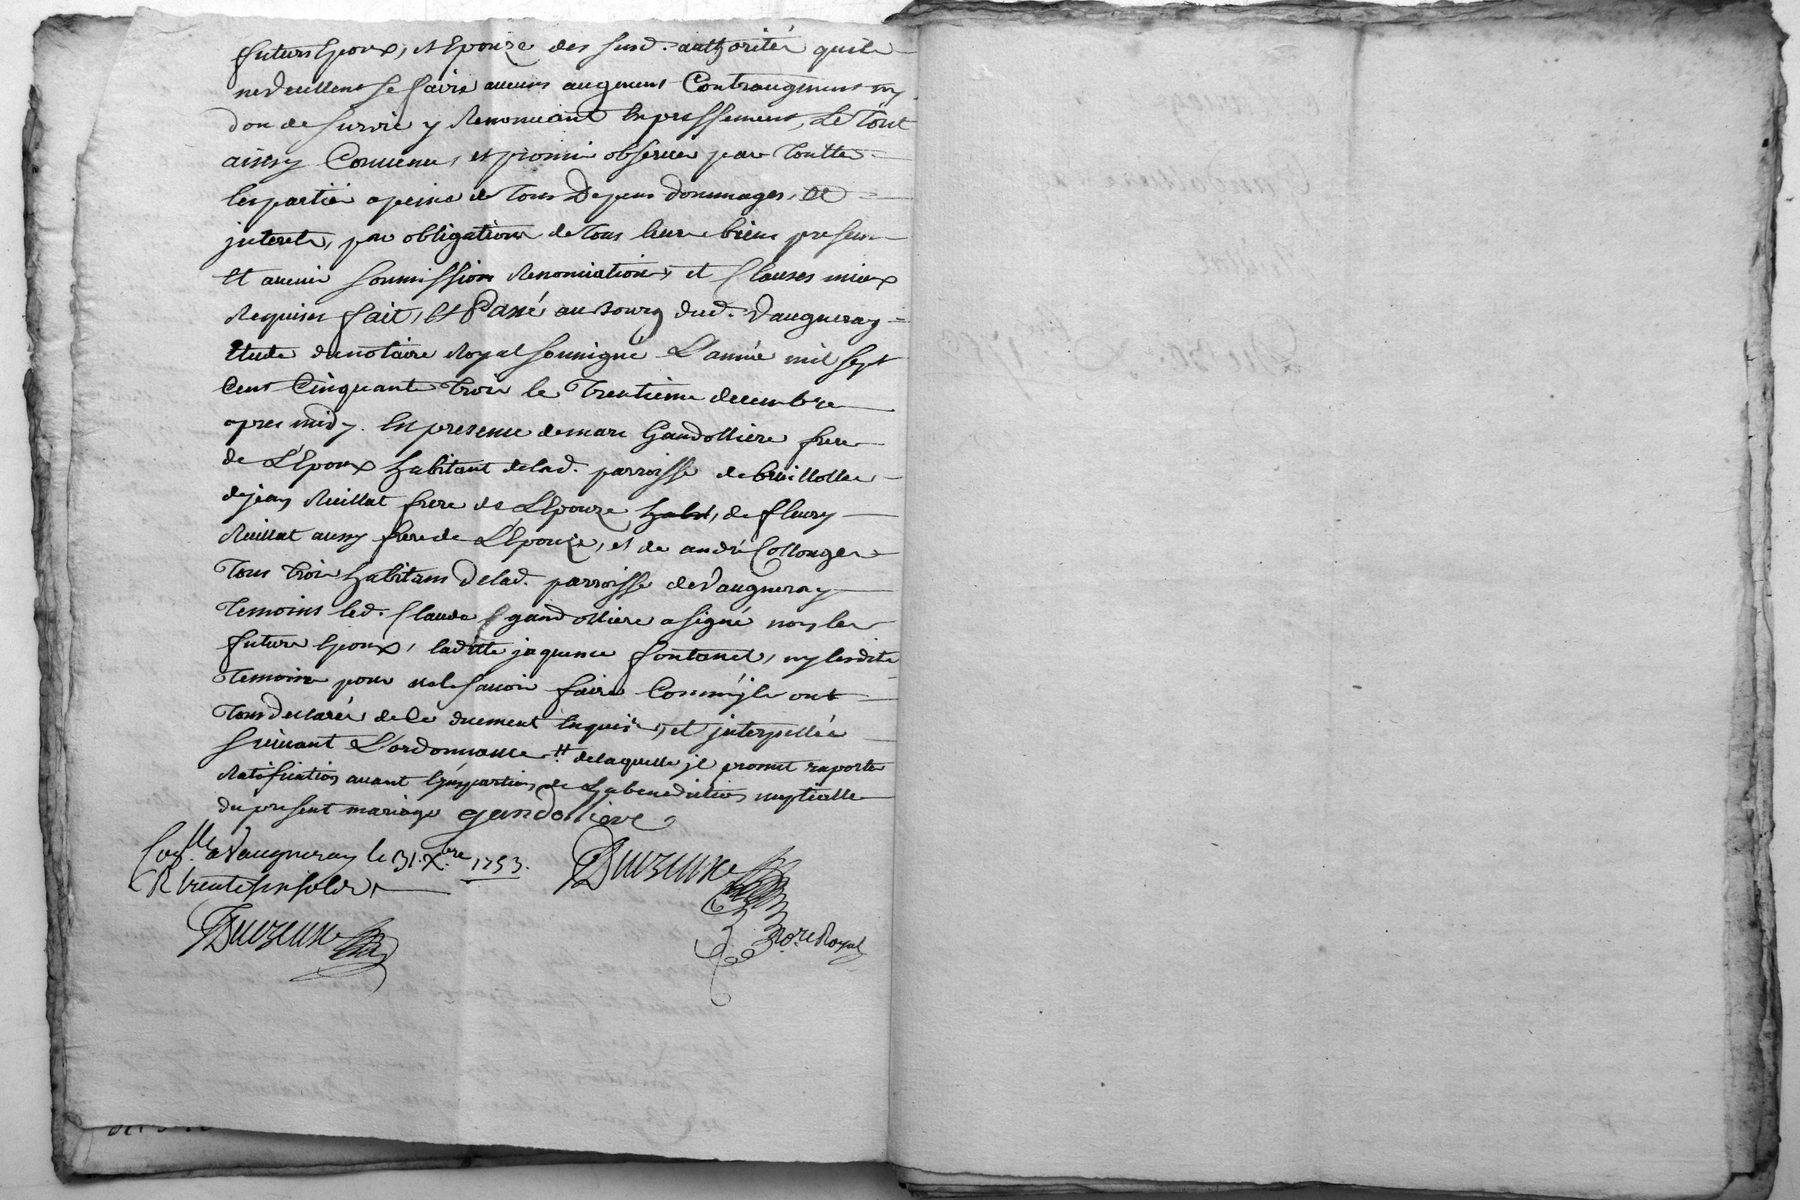 futurs Epoux, et Epouze des susd. authorités quils
ne veuillent se faire aucuns augment Contraugment ny
don de survie y Renonceant Expressement, Le Tout
ainsy Convenu, et promis observer par Touttes
les parties a peine de Tous Depens dommages, et
interets, par obligation de Tous leurs biens presens
et avenir soumissions Renonciations et Clauses mieux
Requises fait, et Passé au Bourg dud. Vaugneray
Etude du notaire Royal soussigné L'année mil sept
Cent Cinquante Trois le Trentieme decembre
apres midy. En presence de marc Gandolliere frere
de L'Epoux habitant de lad. parroisse de brullolles
de jean Rullat frere de L'Epouze, de fleury
Rullat aussy frere de L'Epouze, et de andré Collonges
Tous Trois habitans de lad. parroisse de Vaugneray
Temoins led. Claude gandolliere a signé non les
futurs Epoux, laditte jaquemee fontanet, ny lesdits
Temoins pour ne le savoir faire Comme ils ont
Tous declarés de ce duement Enquis, et interpellés
suivant L'ordonnance # de laquelle il promet raporter
Ratification avant de La benediction nuptialle
du present mariage gandoliere
Con.lle a Vaugneray le 31. Xbre 1753.
R trente six sols
Duvzeux
Duvzeux
No.re Royal